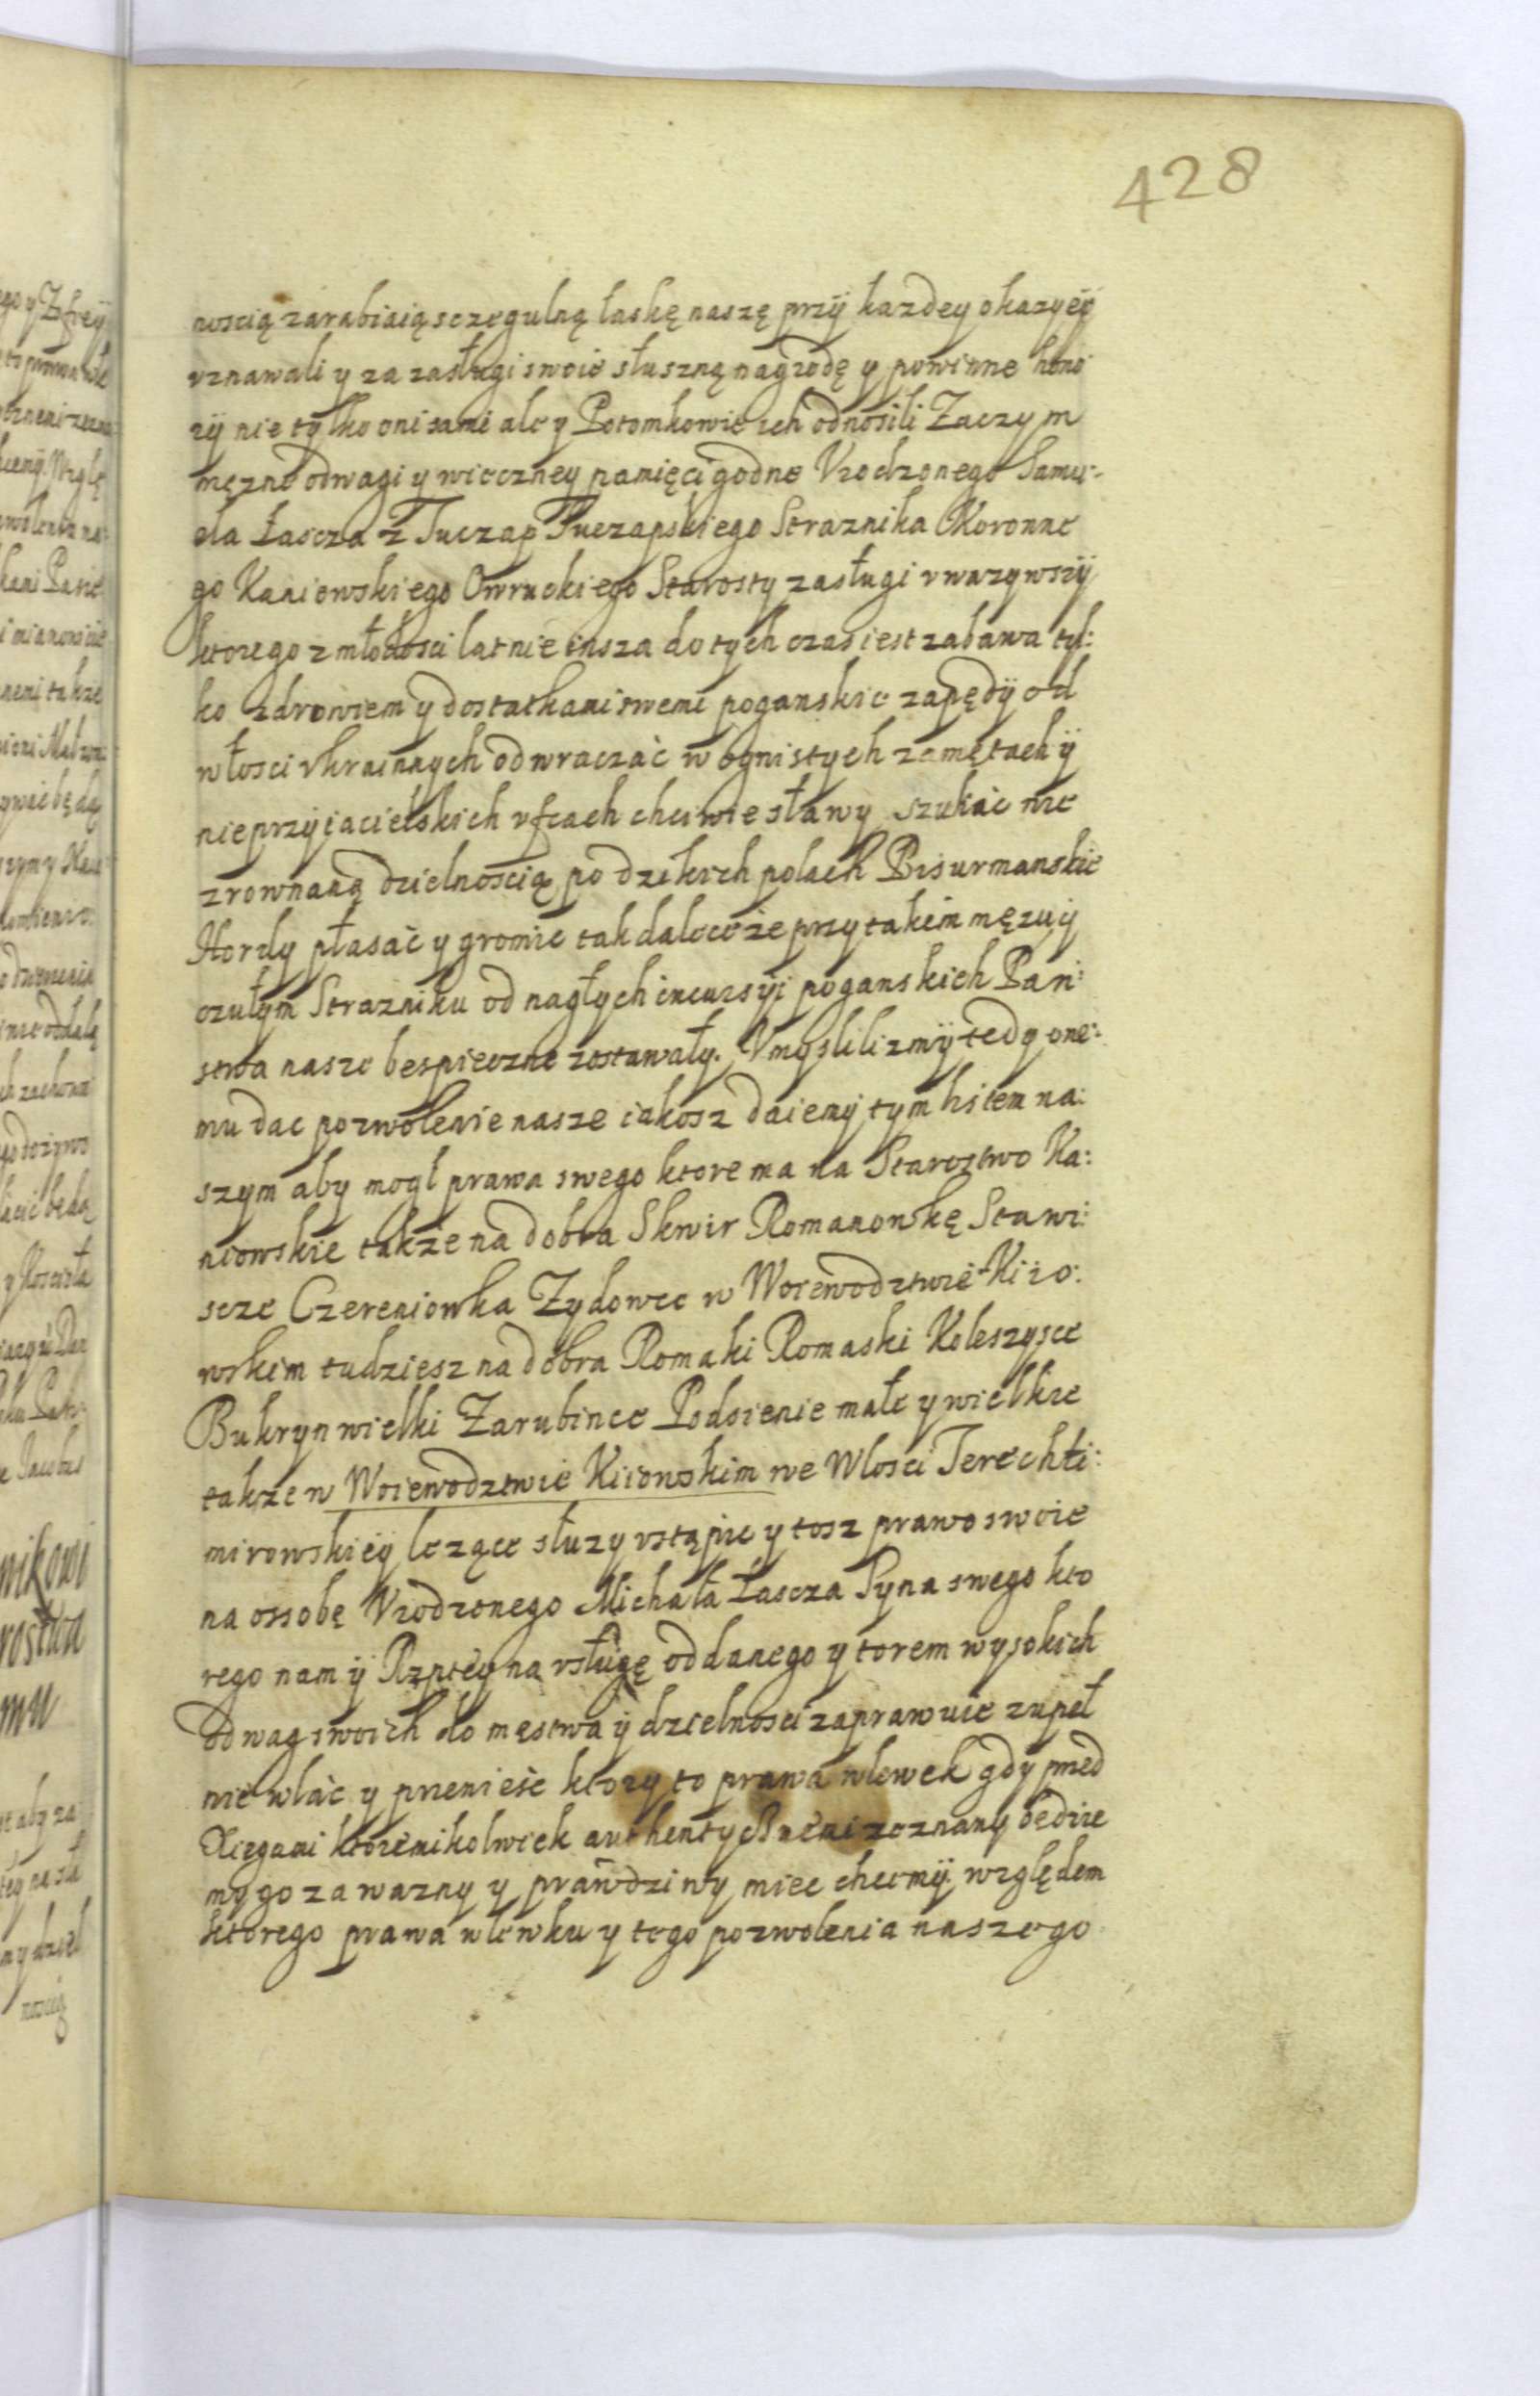 428
noscią zarabiaią sczegulną łaskę naszę przÿ kazdey okazyeÿ
vznawali y za zasługi swoie słuszną nagrodę y powinne hono
rÿ nie tylko oni sami ale y Potomkowie ich odnosili Zaczym
męzne odwagi y wieczney pamięci godne Vrodzonego Samu:
ela Łascza z Tuczap Tuczapskiego Straznika Koronne
go Kaniowskiego Owruckiego Starosty zasługi vwazywszÿ
ktorego z młodosci lat nie insza do tych czas iest zabawa tyl:
ko zdrowiem y dostatkami swemi poganskie zapędÿ od
włosci vkrainnych odwraczać w ognistych zamętach ÿ
nieprzyiacielskich vfcach chciwie sławy szukać nie
zrownaną dzielnoscią po dzikich polach Bisurmanskie
Hordy płasać y gromic tak dalece że przy takim męzu ÿ
czułym Strazniku od nagłych incursÿi poganskich Pan:
stwa nasze bespieczne zostawały. Vmyslilizmÿ tedy one:
mu dac pozwolenie nasze iakosz daiemÿ tym listem na:
szym aby mogł prawa swego ktore ma na Starostwo Ka:
niowskie także na dobra Skwir Romanowkę Stawi:
scze Czereniowka Zydowce w Woiewodztwie Kiio:
wskim tudziesz na dobra Romaki Romaski Koleszysce
Bukryn wielki Zarubince Podsienie małe y wielkie
takze w Woiewodztwie Kiiowskim we Włosci Terechti:
mirowskieÿ lezące słuzy vstąpic y tosz prawo swoie
na ossobę Vrodzonego Michała Łascza Syna swego kto
rego nam ÿ Rzptey na vsługę oddanego y torem wysokich
odwag swoich do męstwa ÿ dzielnosci zaprawuie zupeł
nie wlać y przenieść ktory to prawa wlewek gdy przed
Xięgami ktoremikolwiek authentycznemi zeznany będzie
my go za wazny y prawdziwy miec chcemÿ względem
ktorego prawa wlewku y tego pozwolenia naszego